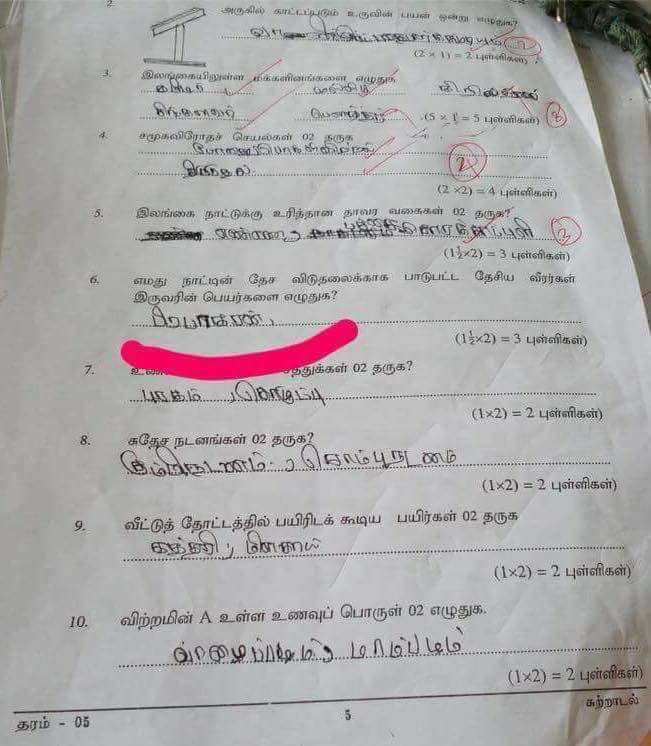 2.
அருகில் காட்டப்படும் உருவின் பயன் ஒன்று எழுதுக?
(2 × 1) = 2 புள்ளிகள்)
3. இலங்கையிலுள்ள மக்களினங்களை எழுதுக
தமிழர் முஸ்லிம் சிங்களவர்
(5 × 1 = 5 புள்ளிகள்) 3
4. சமூகவிரோதச் செயல்கள் 02 தருக
2
(2 ×2) = 4 புள்ளிகள்)
5. இலங்கை நாட்டுக்கு உரித்தான தாவர வகைகள் 02 தருக?
(1½×2) = 3 புள்ளிகள்)
6. எமது நாட்டின் தேச விடுதலைக்காக பாடுபட்ட தேசிய வீரர்கள்
இருவரின் பெயர்களை எழுதுக?
பிரபாகரன்,
(1½×2) = 3 புள்ளிகள்)
7. த்துக்கள் 02 தருக?
புரதம் , கொழுப்பு
(1×2) = 2 புள்ளிகள்)
8. சுதேச நடனங்கள் 02 தருக?
கும்மிநடனம் , கொம்புநடனம்
(1×2) = 2 புள்ளிகள்)
9. வீட்டுத் தோட்டத்தில் பயிரிடக் கூடிய பயிர்கள் 02 தருக
கத்தரி ,
(1×2) = 2 புள்ளிகள்)
10. விற்றமின் A உள்ள உணவுப் பொருள் 02 எழுதுக.
வாழைப்பழம் , மாம்பழம்
(1×2) = 2 புள்ளிகள்)
தரம் - 05 5 சுற்றாடல்